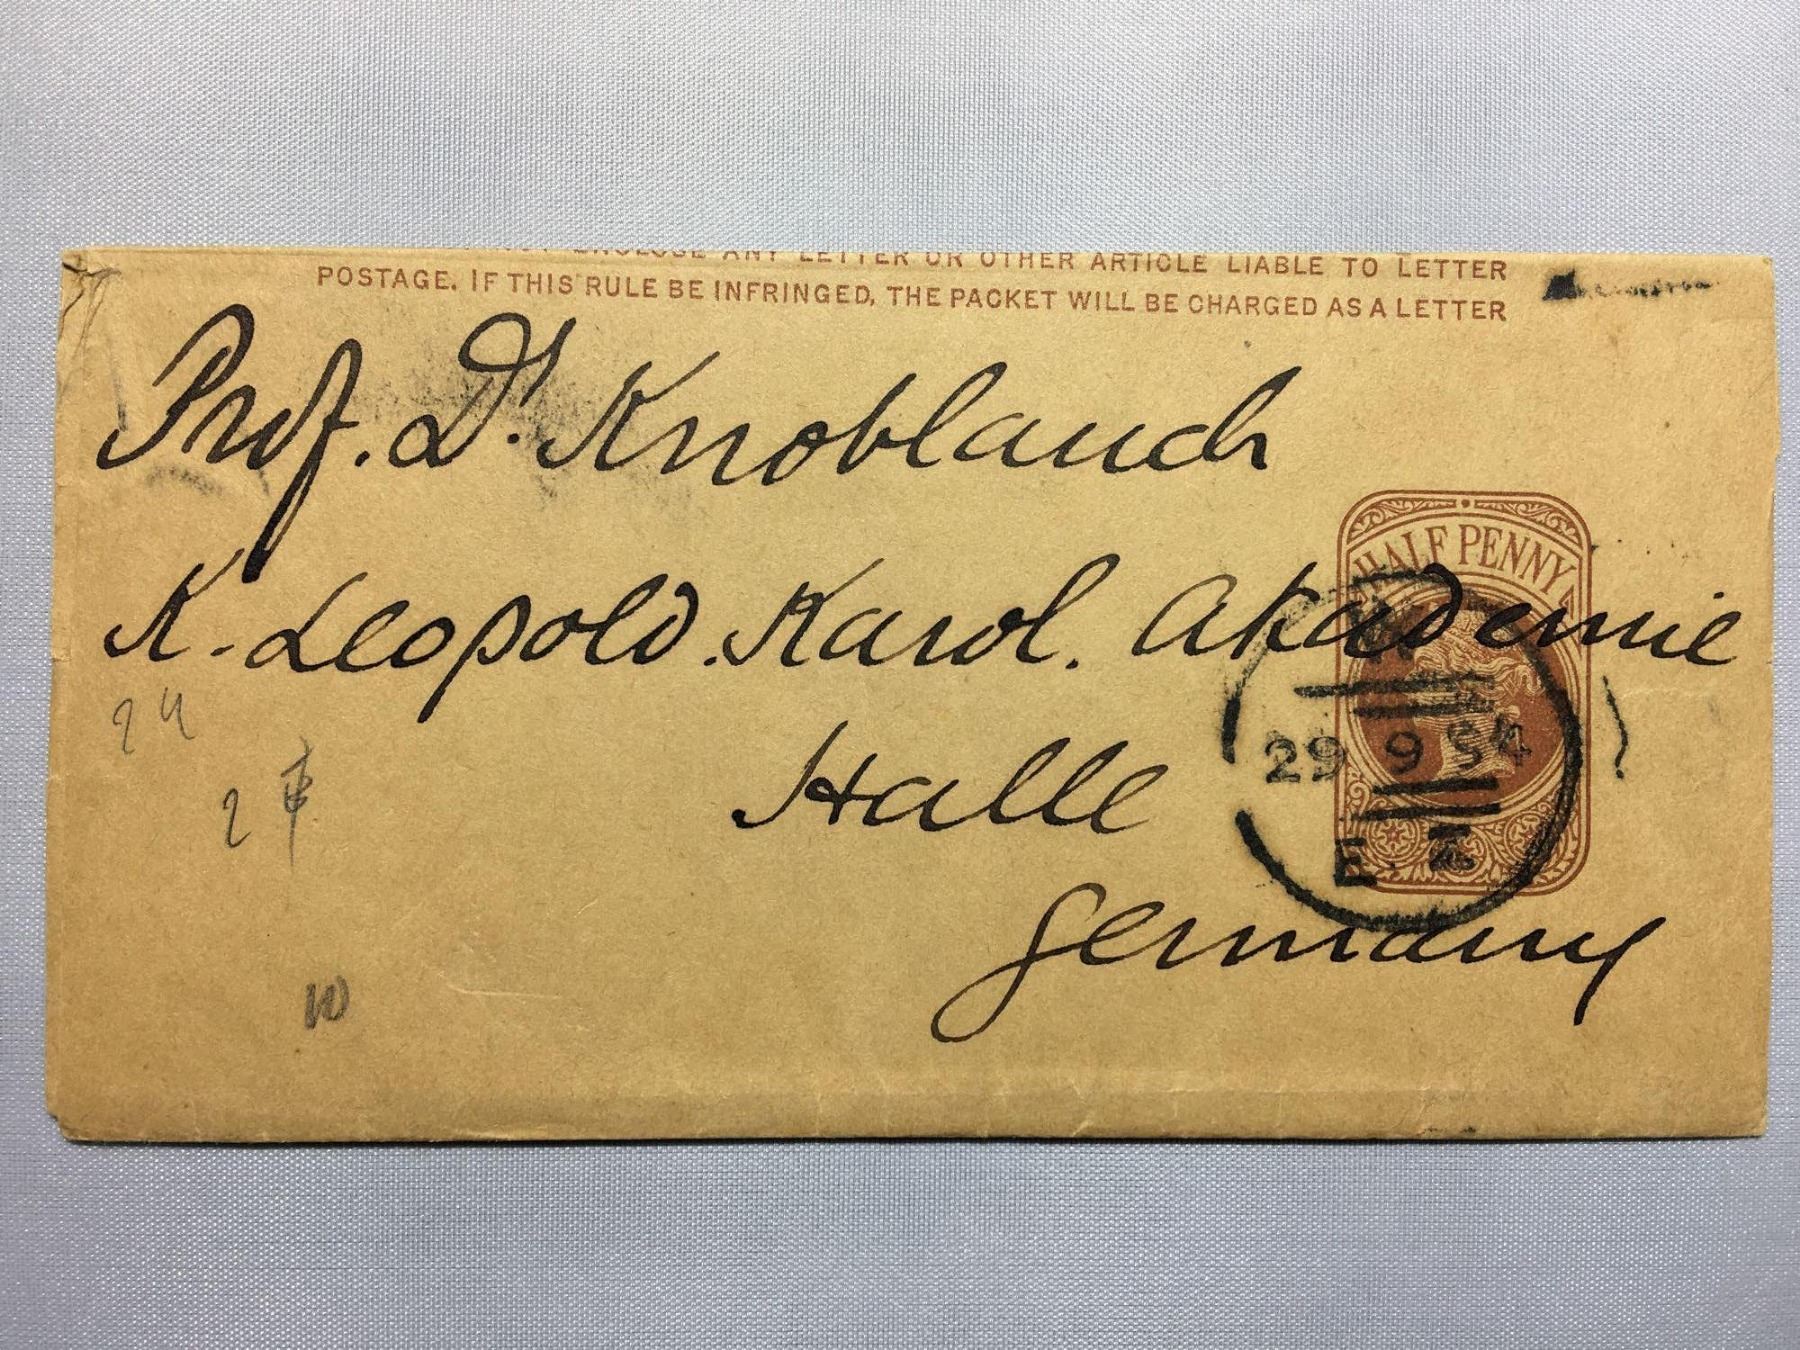 ENCLOSE ANY LETTER OR OTHER ARTICLE LIABLE TO LETTER
POSTAGE. IF THIS RULE BE INFRINGED, THE PACKET WILL BE CHARGED AS A LETTER
Prof. Dr. Knoblauch
HALF PENNY
K. Leopold. Karol. Akademie
24
29 9 94
Halle
2
E. Z
Germany
10